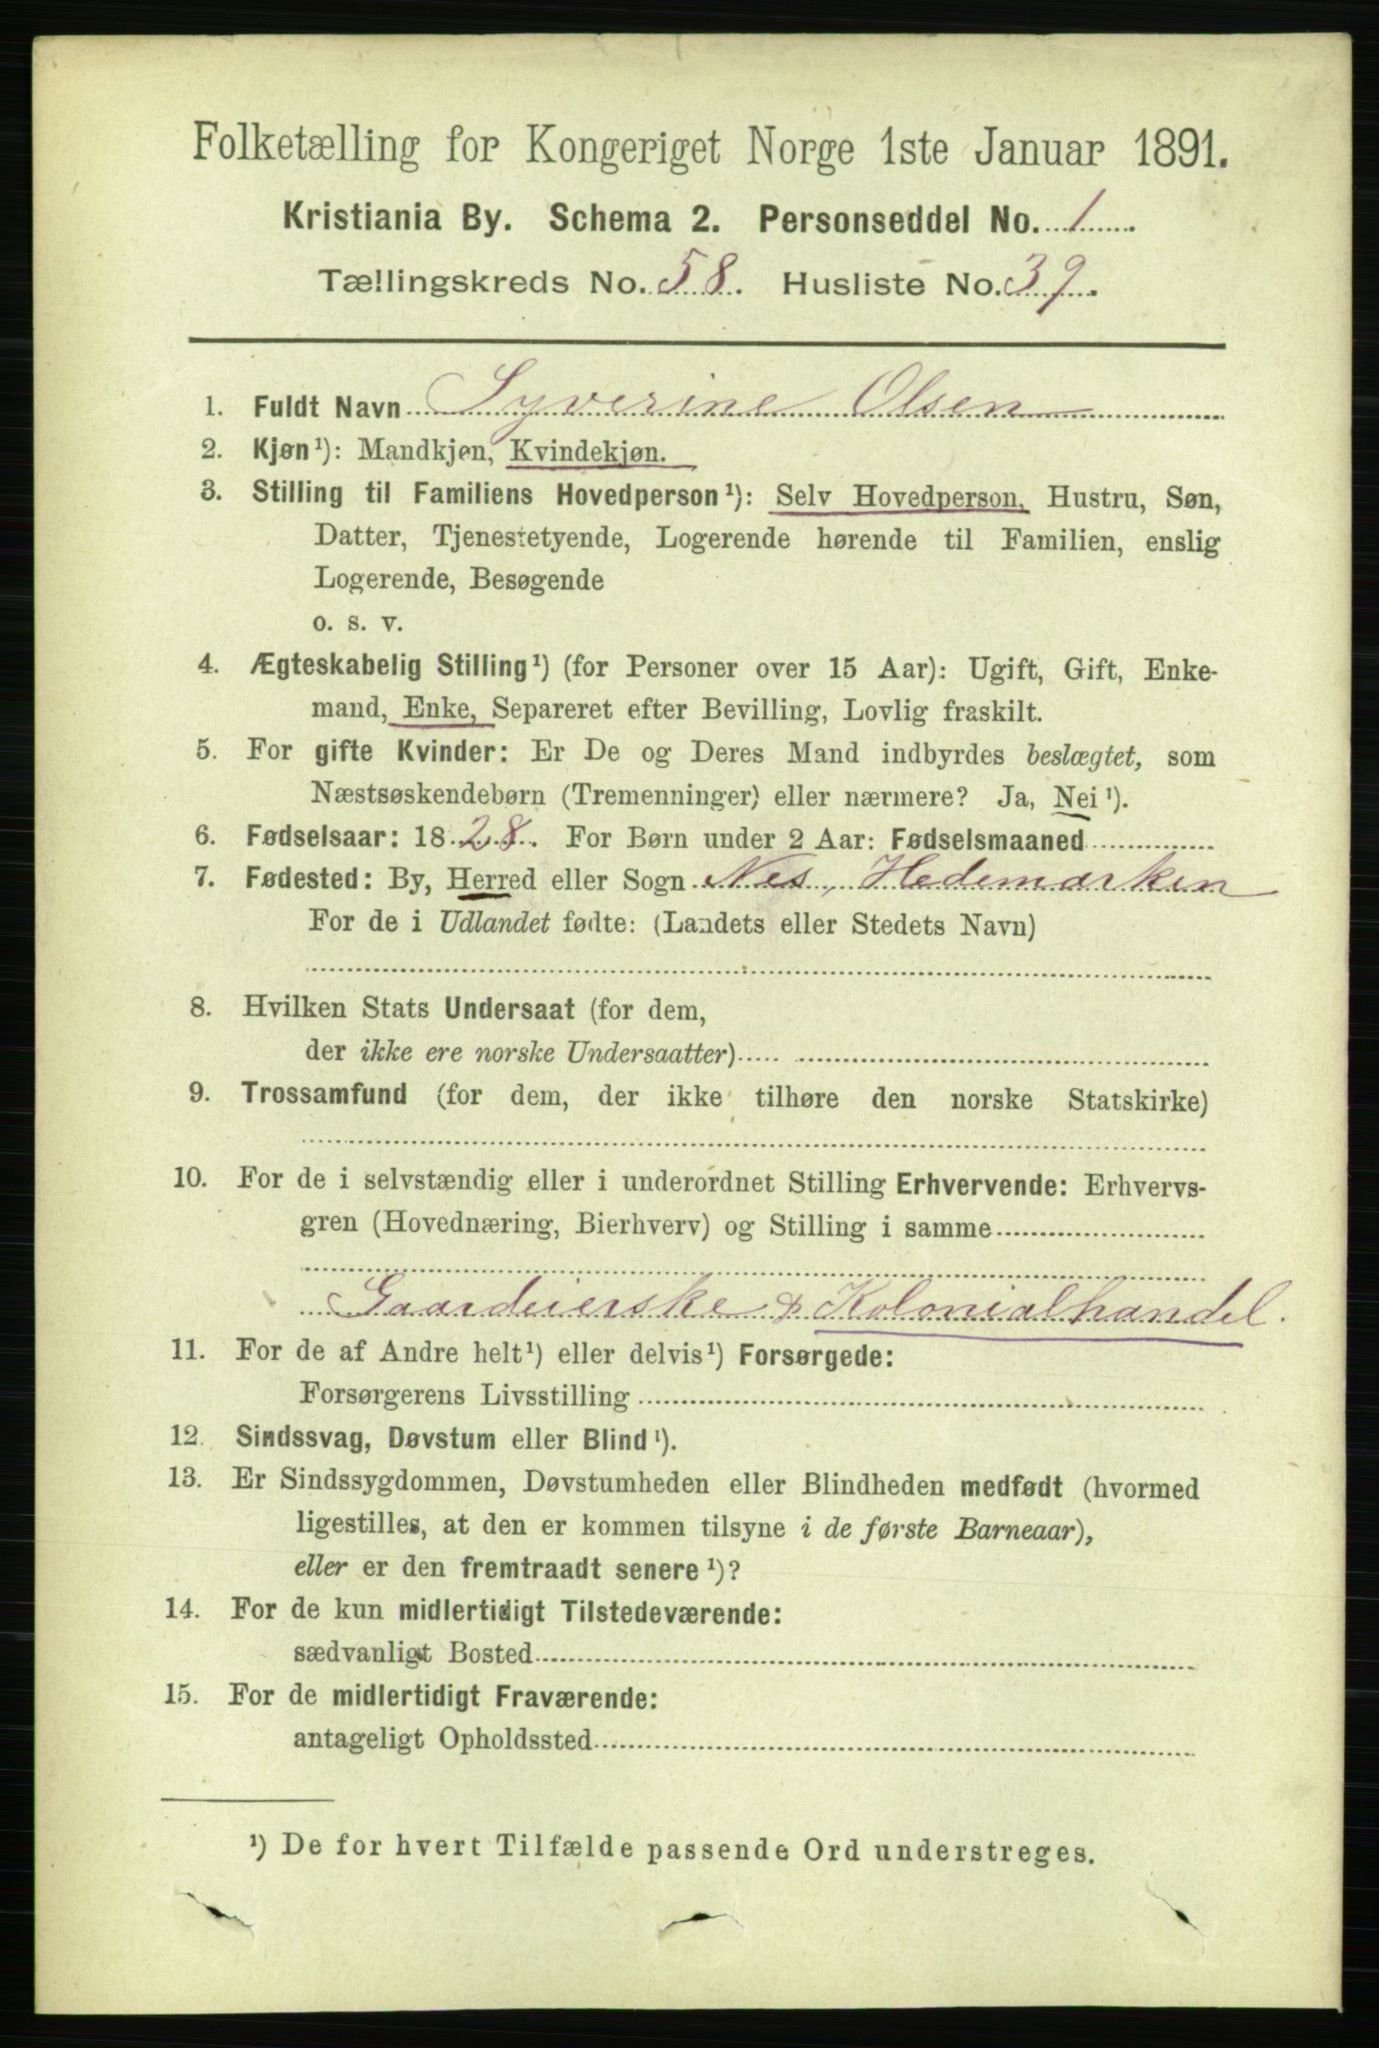 Folketælling for Kongeriget Norge 1ste Januar 1891.
Kristiania By. Schema 2. Personseddel No. 1
Tællingskreds No. 58. Husliste No. 39.
1. Fuldt Navn Syverine Olsen
2. Kjøn¹): Mandkjøn, Kvindekjøn.
3. Stilling til Familiens Hovedperson¹): Selv Hovedperson, Hustru, Søn,
Datter, Tjenestetyende, Logerende hørende til Familien, enslig
Logerende, Besøgende
o. s. v.
4. Ægteskabelig Stilling¹) (for Personer over 15 Aar): Ugift, Gift, Enke-
mand, Enke, Separeret efter Bevilling, Lovlig fraskilt.
5. For gifte Kvinder: Er De og Deres Mand indbyrdes beslægtet, som
Næstsøskendebørn (Tremenninger) eller nærmere? Ja, Nei¹).
6. Fødselsaar: 1828. For Børn under 2 Aar: Fødselsmaaned
7. Fødested: By, Herred eller Sogn Nes, Hedemarken
For de i Udlandet fødte: (Landets eller Stedets Navn)
8. Hvilken Stats Undersaat (for dem,
der ikke ere norske Undersaatter)
9. Trossamfund (for dem, der ikke tilhøre den norske Statskirke)
10. For de i selvstændig eller i underordnet Stilling Erhvervende: Erhvervs-
gren (Hovednæring, Bierhverv) og Stilling i samme
Gaardeierske & Kolonialhandel.
11. For de af Andre helt¹) eller delvis¹) Forsørgede:
Forsørgerens Livsstilling
12. Sindssvag, Døvstum eller Blind¹).
13. Er Sindssygdommen, Døvstumheden eller Blindheden medfødt (hvormed
ligestilles, at den er kommen tilsyne i de første Barneaar),
eller er den fremtraadt senere¹)?
14. For de kun midlertidigt Tilstedeværende:
sædvanligt Bosted
15. For de midlertidigt Fraværende:
antageligt Opholdssted
¹) De for hvert Tilfælde passende Ord understreges.